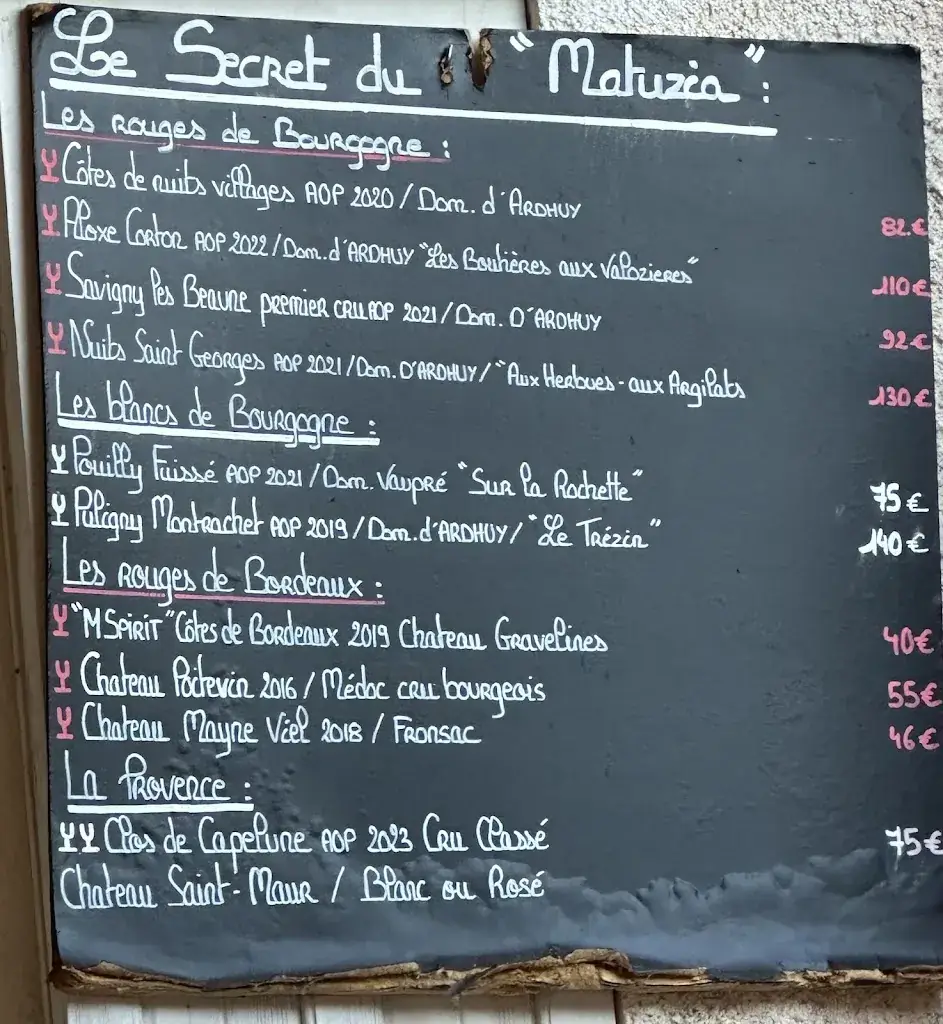 Le Secret du "Matuzia" :
Les rouges de Bourgogne :
Côtes de nuits villages AOP 2020 / Dom. d'ARDHUY 82 €
Aloxe Corton AOP 2022 / Dom. d'ARDHUY "Les Boutières aux Valozieres" 110 €
Savigny les Beaune PREMIER CRU AOP 2021 / Dom. D'ARDHUY 92 €
Nuits Saint Georges AOP 2021 / Dom. D'ARDHUY / "Aux Herbues - aux Argilats 130 €
Les blancs de Bourgogne :
Pouilly Fuissé AOP 2021 / Dom. Vaupré "Sur la Rochette" 75 €
Puligny Montrachet AOP 2019 / Dom. d'ARDHUY / "Le Trézin" 140 €
Les rouges de Bordeaux :
"M SPIRIT" Côtes de Bordeaux 2019 Chateau Gravelines 40 €
Chateau Poitevin 2016 / Médoc cru bourgeois 55 €
Chateau Mayne Viel 2018 / Fronsac 46 €
La Provence :
Clos de Capelune AOP 2023 Cru Classé 75 €
Chateau Saint-Maur / Blanc ou Rosé